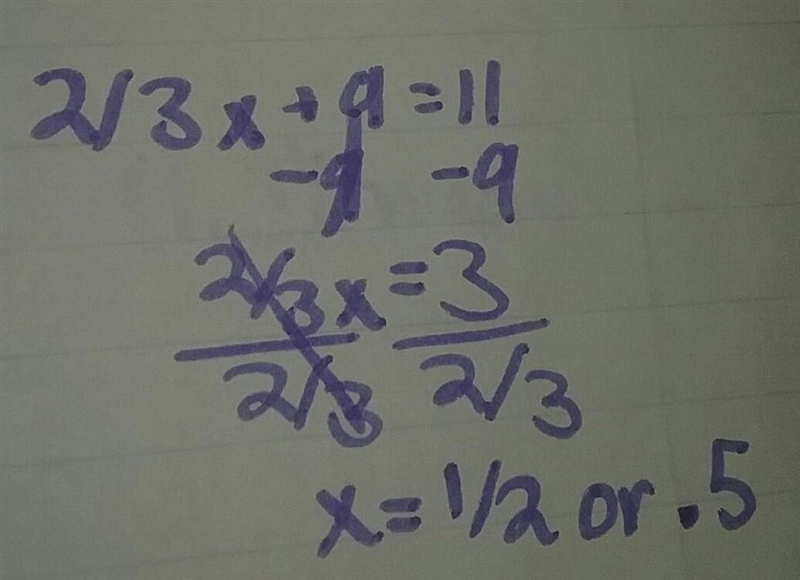 2/3x+9=11
-9 -9
2/3x=3
2/3 2/3
x=1/2 or .5